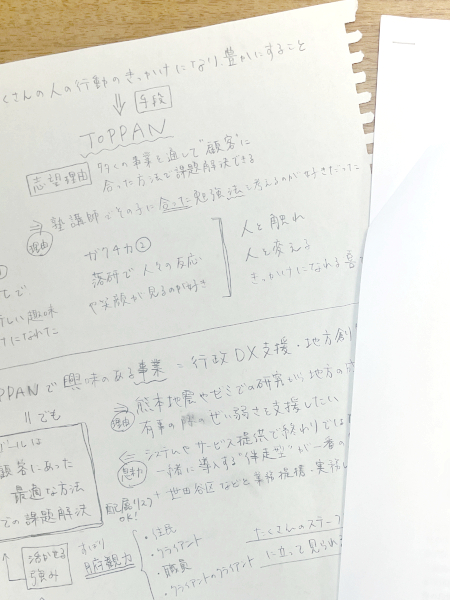 くさんの人の行動のきっかけになり、豊かにすること
手段
TOPPAN
志望理由
多くの事業を通して"顧客"に
合った方法で課題解決できる
塾講師でその子に合った勉強法を考えるのが好きだった
理由
ガクチカ②
落研で人々の反応
や笑顔が見るのが好き
人と触れ
人を変える
きっかけになれる喜
で
しい趣味
けになれた
PPANで興味のある事業 = 行政DX支援・地方創
でも
熊本地震やゼミでの研究から地方の
有事の際のぜい弱さを支援したい
理由
システムやサービス提供で終わりでは
一緒に導入する"伴走型"が一番の
世田谷区などと業務提携・実施
OK!
ゴールは
顧客にあった
最適な方法
での課題解決
活かせる
強み
ずばり
俯瞰力
・住民
・クライアント
・職員
・クライアントのクライアント
たくさんのステー
に立って見られ